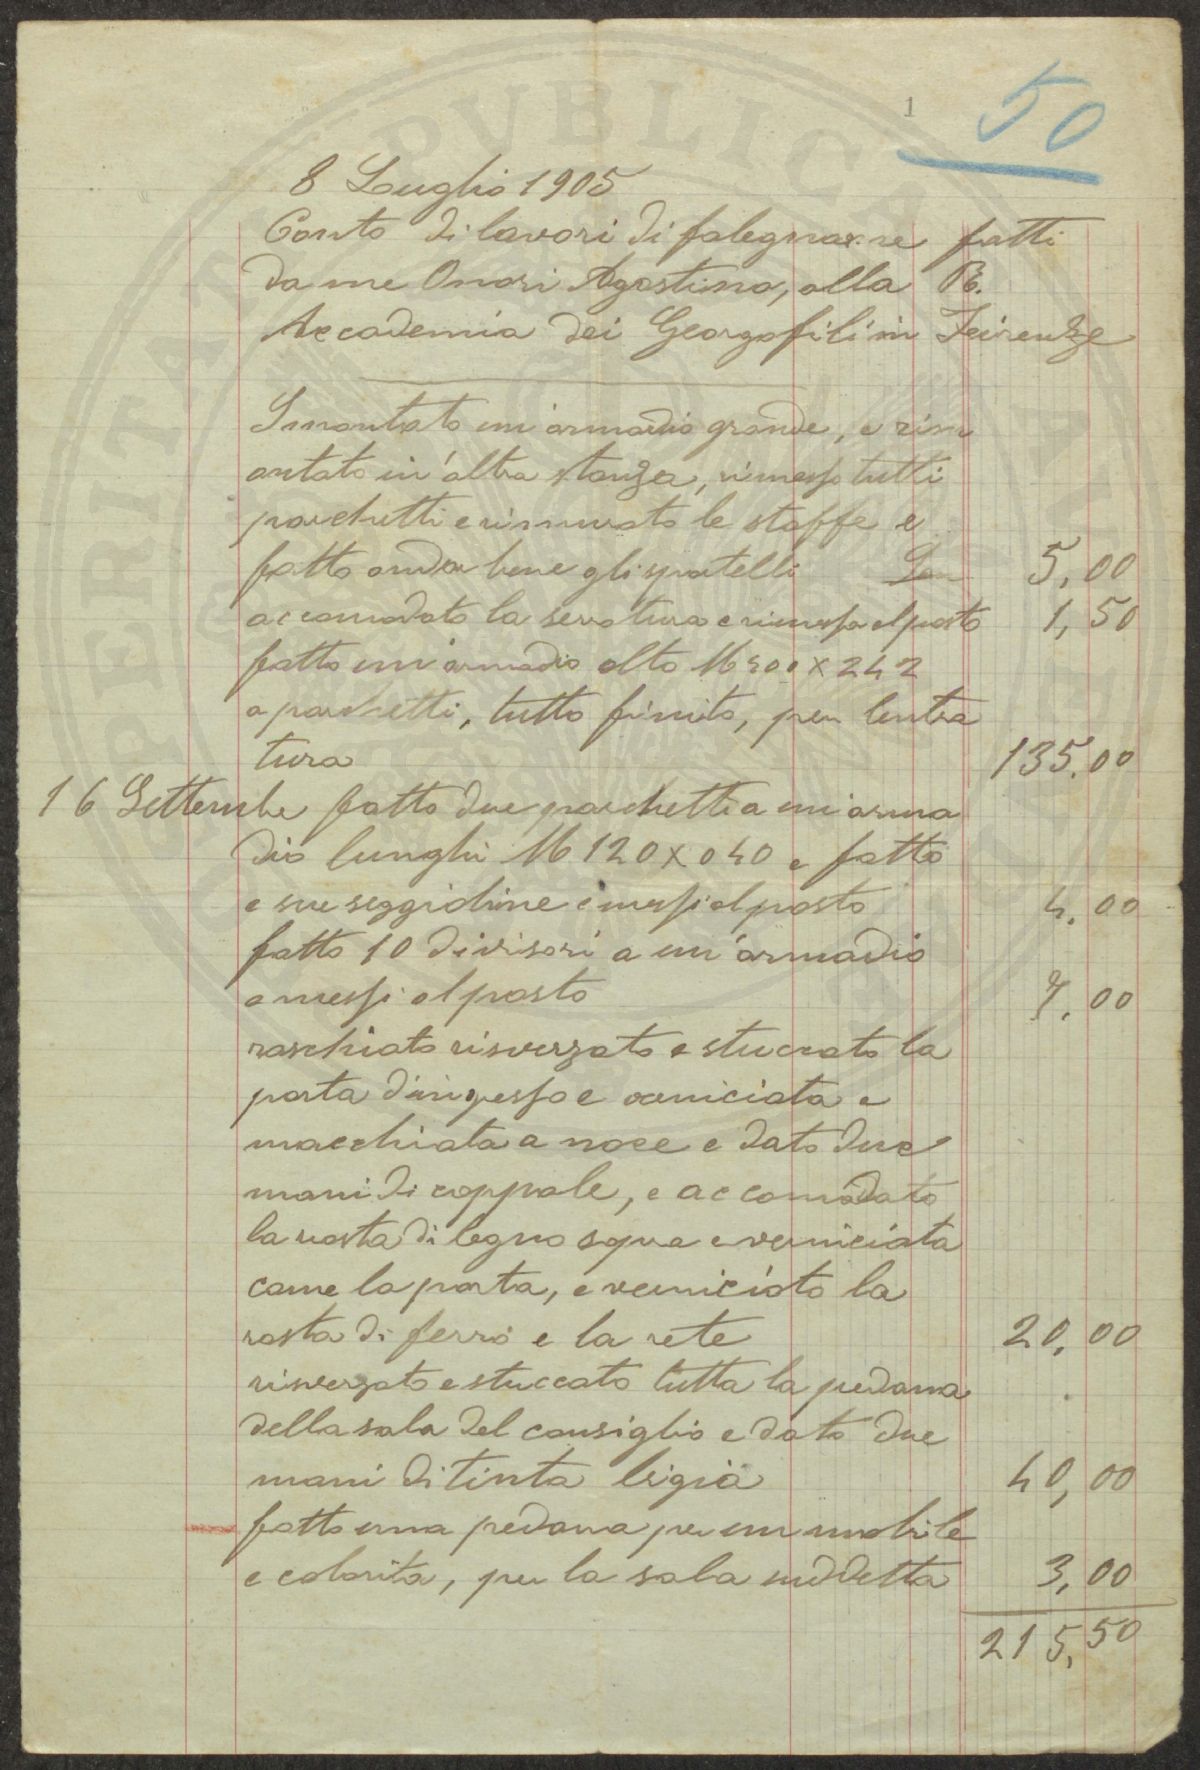 1
50
8 Luglio 1905
Conto di lavori di falegname fatti
da me Onori Agostino, alla R.
Accademia dei Georgofili in Feirenze
Smontato un armadio grande, e rim
ontato in'altra stanza, rimesso tutti
parchetti e rimurato le staffe e
fatto andar bene gli sportelli
5,00
accomodato la serratura e rimessa al posto
1,50
fatto un armadio alto M 400 x 242
a parchetti, tutto finito, per lentra
tura
135,00
16 Settembe fatto due parchetti a un arma
dio lunghi M 120 x 040 e fatto
e sue seggioline e messi al posto
4,00
fatto 10 divisori a un'armadio
e messi al posto
7,00
raschiato risverzato e stuccato la
porta d'ingresso e verniciata e
macchiata a noce e dato due
mani di coppale, e accomodato
la rosta di legno sopra e verniciata
come la porta, e verniciato la
rosta di ferro e la rete
20,00
risverzato e stuccato tutta la pedana
della sala del consiglio e dato due
mani di tinta brigia
40,00
fatto una pedana per un mobile
e colorita, per la sala suddetta
3,00
215,50
PERITATI PVBLICAE